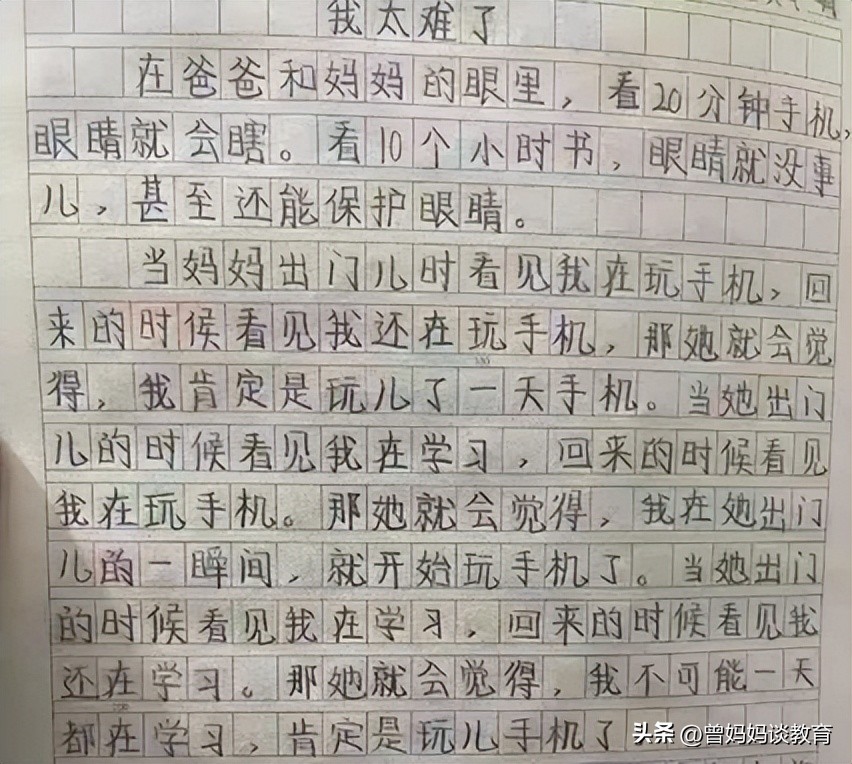 我太难了
在爸爸和妈妈的眼里，看20分钟手机，
眼睛就会瞎。看10个小时书，眼睛就没事
儿，甚至还能保护眼睛。
当妈妈出门儿时看见我在玩手机，回
来的时候看见我还在玩手机，那她就会觉
得，我肯定是玩儿了一天手机。当她出门
儿的时候看见我在学习，回来的时候看见
我在玩手机。那她就会觉得，我在她出门
儿的一瞬间，就开始玩手机了。当她出门
的时候看见我在学习，回来的时候看见我
还在学习。那她就会觉得，我不可能一天
都在学习，肯定是玩儿手机了
头条 @曾妈妈谈教育